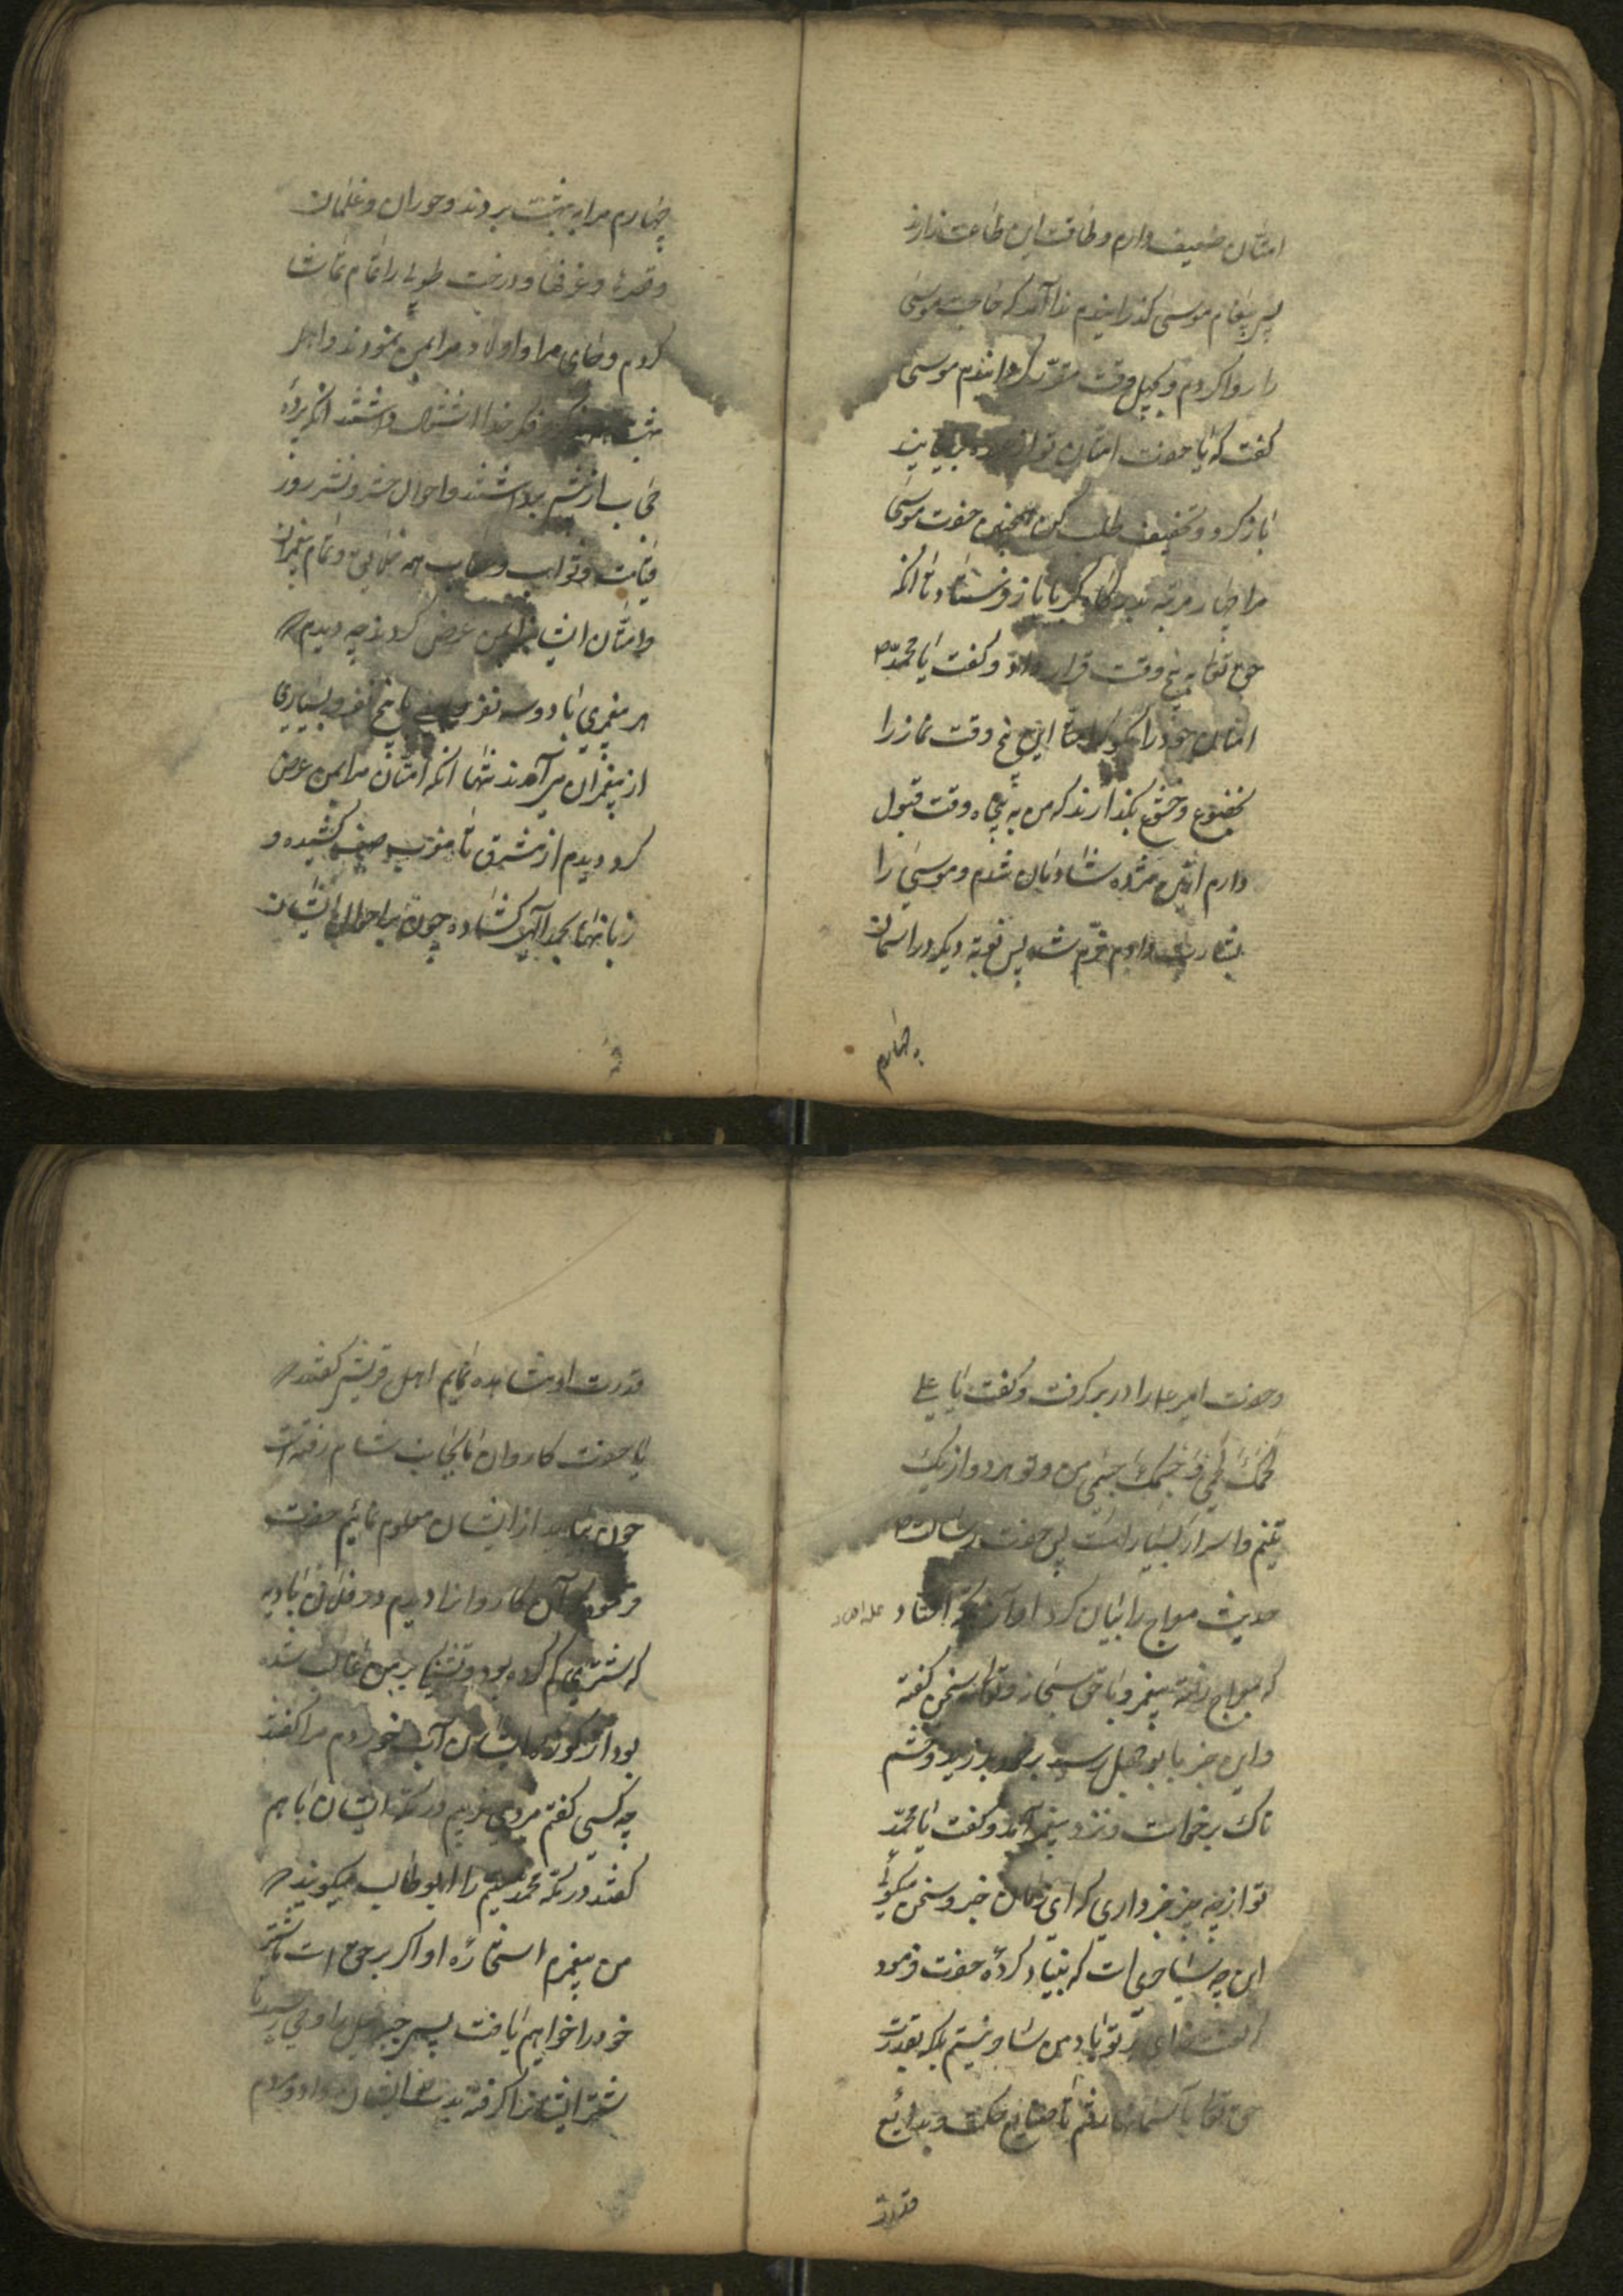 امتان ضعیف دارم و طاقت این طاعت ندارند
پس پیغام موسی گذرانیدم ندا آمد که حاجت موسی
را روا کردم و چهل وقت مقرّر گردانندم موسی
گفت که یا حضرت امتان تو از
باز گرد و تخفیف طلب کن همچنین حضرت موسی
مرا چهار مرتبه بدرگاه کبریا باز فرستاد تا آنکه
حق تعا به پنج وقت قرار داد و گفت یا محمّد ص
امتان خود را بگو که این پنج وقت نماز را
بخضوع و خشوع بگذارند که من به پنجاه وقت قبول
دارم ازین مژده شادمان شدم و موسی را
بشارت دادم خرّم شد پس نوبة دیگر در اسمان
چهارم
چهارم مرا به بهشت بردند و حوران و غلمان
و قصرها و غرفها و درخت طوبی را تمام تماشا
کردم و جای مرا و اولاد مرا بمن نمودند و اهل
بهشت فکر خدا اشتغال داشتند انکه پرده
حجاب از چشم برداشتند و احوال حشر و نشر روز
قیامت و ثواب و عقاب همه و تمام پیغمبران
و امتان ایشان بمن عرض کردند چه دیدم
هر پیغمبری با دو سه نفر با پنج نفر و بسیاری
از پیغمبران می آمدند تنها انکه امتان مرا بمن عرض
کرد دیدم از مشرق تا مغرب صف کشیده و
زبانهای بحمد الهی گشاده چون بر احوال ایشان
و حضرت امیر ع را در بر گرفت و گفت یا علی
لحمک لحمی و جسمک جسمی من و تو هر دو از یک
و اسرار بسیار است پس حضرت رسالت ص
حدیث معراج را بیان کرد اوازه در مکه افتاد
که بمعراج رفته پیغمبر و با حق سبحانه و تعالی سخن گفته
و این خبر با بو جهل رسید بر خود بلرزید و خشم
ناک برخواست و نزد پیغمبر آمد و گفت یا محمّد
تو از چه چیز خبر داری که این زمان خبر و سخن میگوئی
این چه است که بنیاد کردۀ حضرت فرمود
لعنت خدای بر تو باد من ساحر نیستم بلکه بقدرت
حق تعا بآسمانها رفتم تا صنایع حکمت و بدایع
قدرت
قدرت او مشاهده نمایم اهل قریش گفتند
یا حضرت کاروان ما بجانب شام رفته است
چون بیاید از ایشان معلوم نمائیم حضرت
فرمود که آن کاروانرا دیدم در فلان بادیه
که شتری گم کرده بود و تشنگی بر من غالب شده
بود از کوزه ایشان آب خوردم مرا گفتند
چه کسی گفتم مردی غریبم در مکه ایشان با هم
گفتند در مکه محمّد یتیم را ابو طالب میگویند
من پیغمبرم استخاره او اگر بر حق است ما شتر
خود را خواهیم یافت پس جبرئیل را وحی رسید تا
شتر ایشانرا گرفته بدست ایشان داد